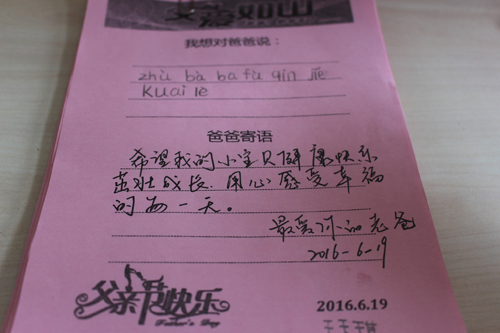 父爱如山
我想对爸爸说：
zhù bà ba fù qīn jíe
Kuai le
爸爸寄语
希望我的小宝贝健康快乐
茁壮成长,用心感受幸福
的每一天。
最爱你的老爸
2016-6-19
父亲节快乐
Father's Day
2016.6.19